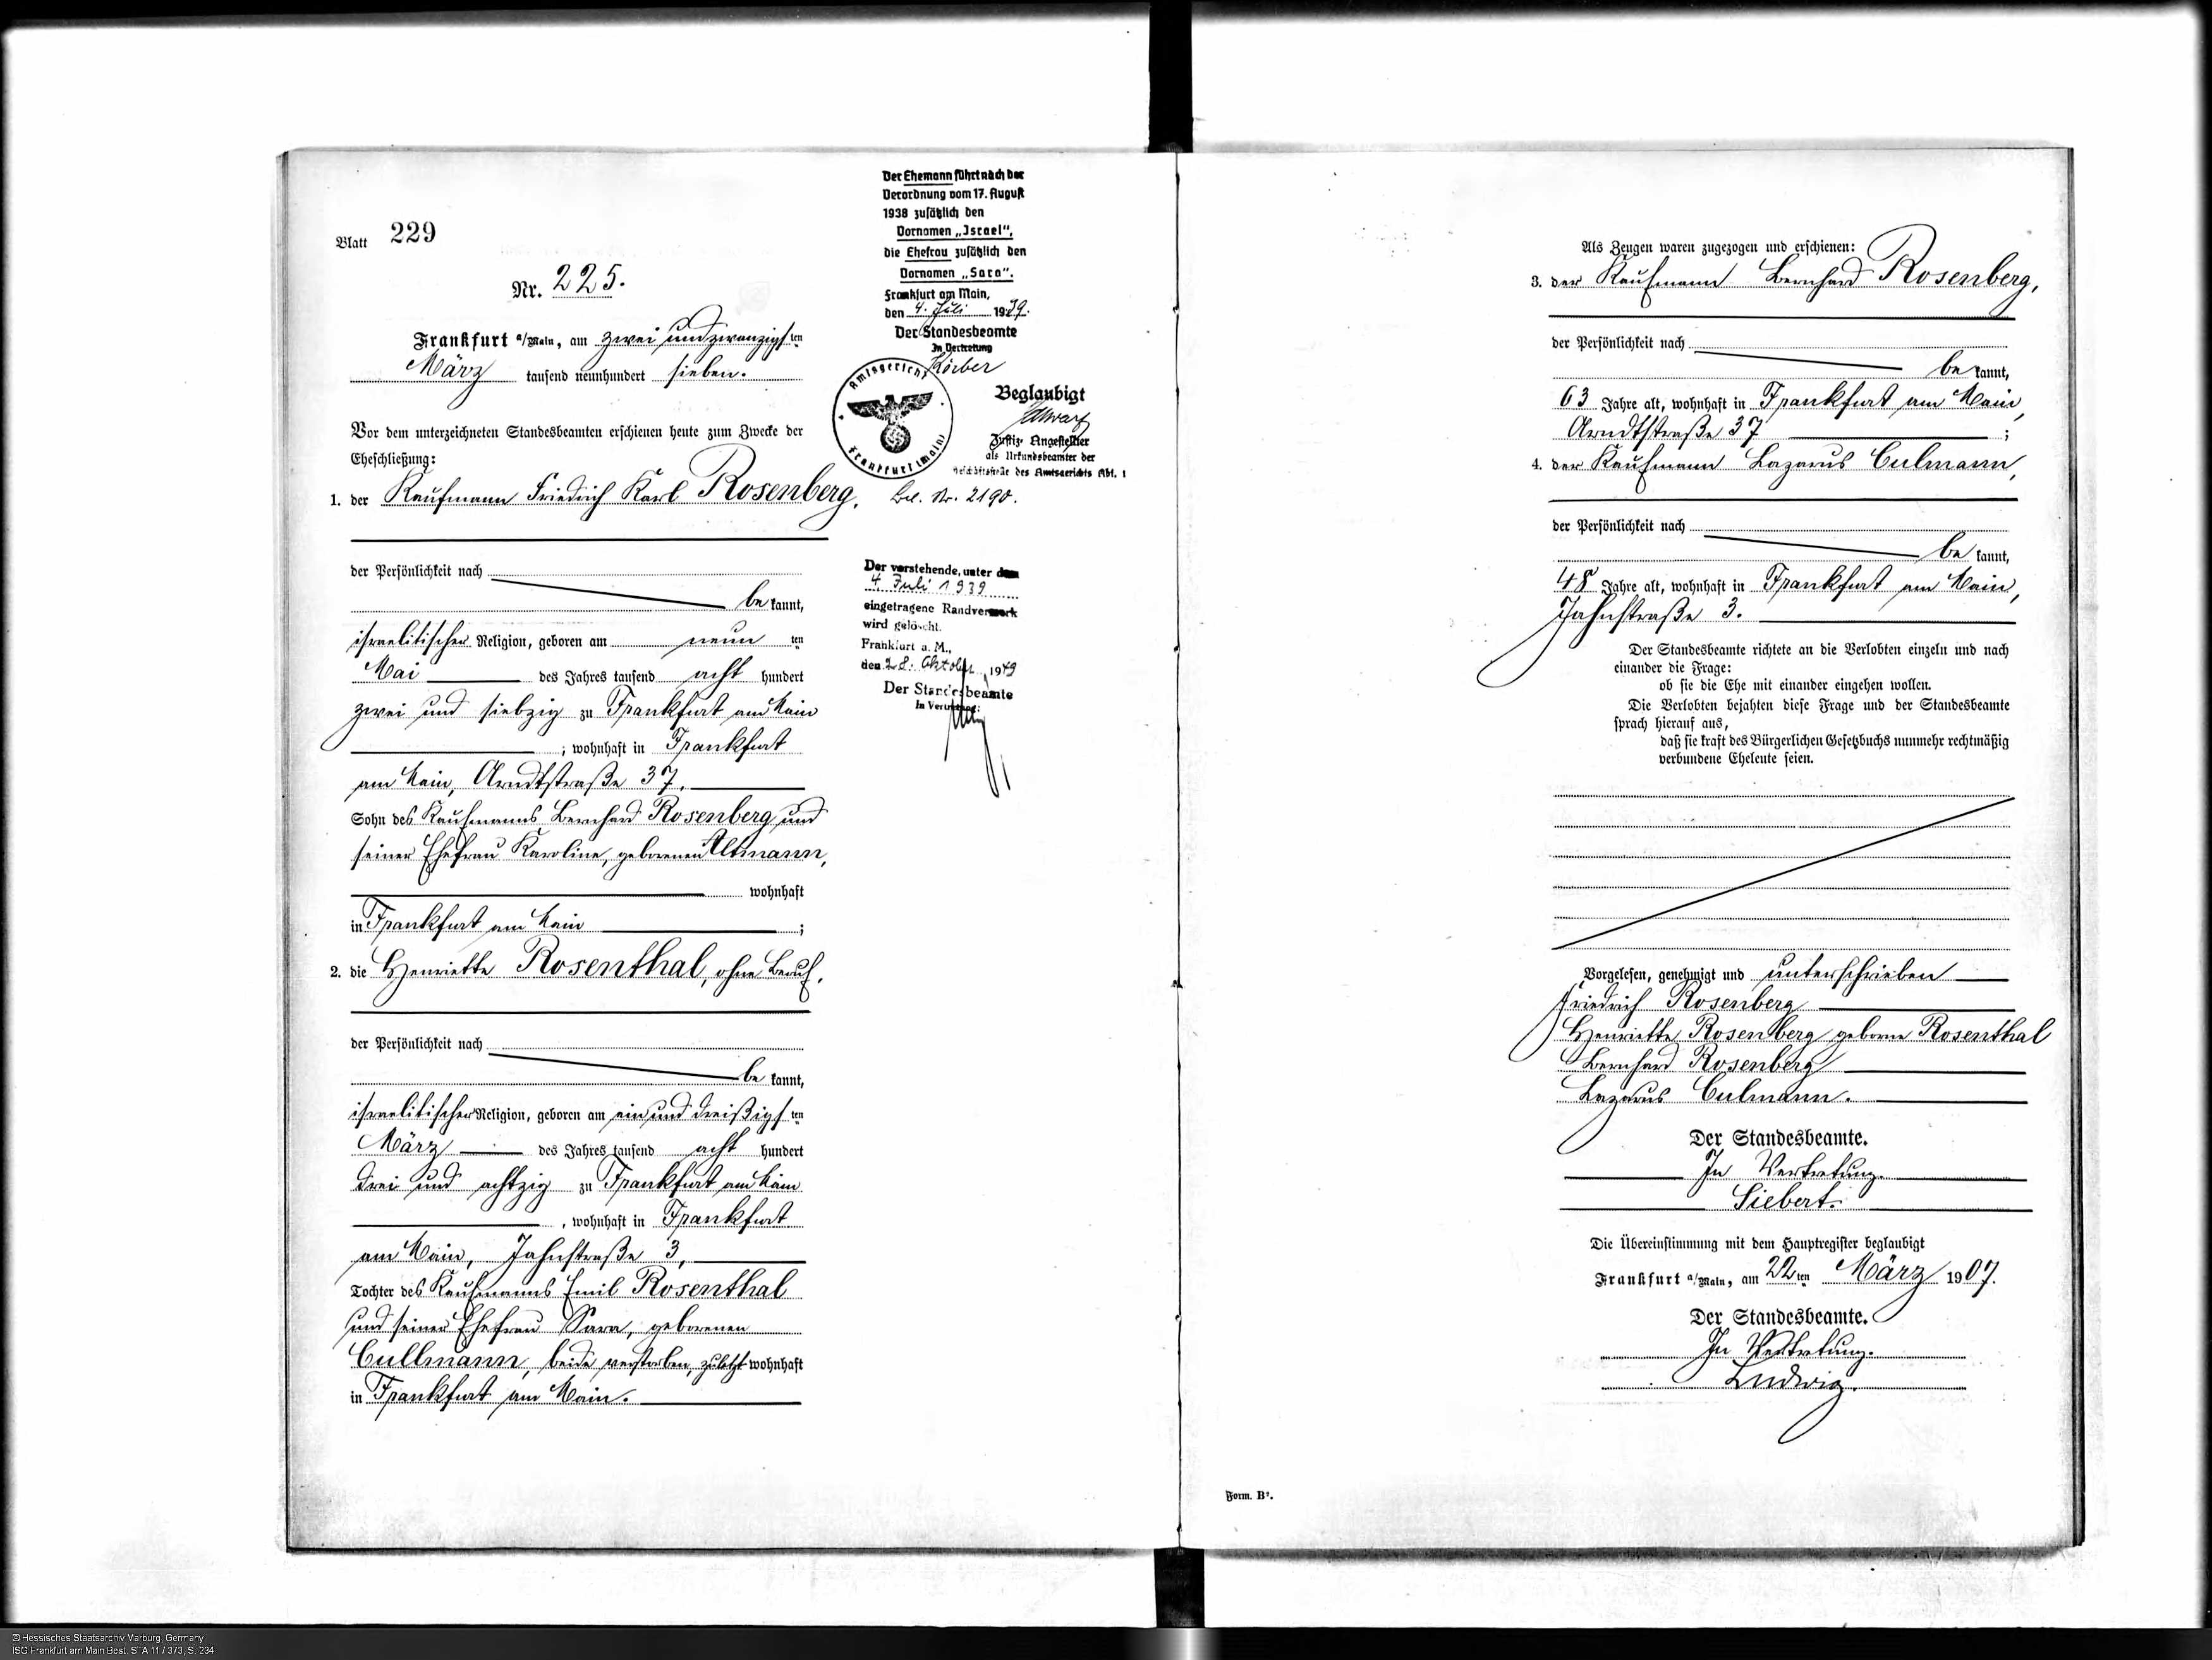 Blatt 229
Nr. 225.
Frankfurt a/Main, am zwei und zwanzigsten
März tausend neunhundert sieben.
Vor dem unterzeichneten Standesbeamten erschienen heute zum Zwecke der
Eheschließung:
1. der Kaufmann Friedrich Karl Rosenberg,
der Persönlichkeit nach
be kannt,
israelitischer Religion, geboren am neun ten
Mai des Jahres tausend acht hundert
zwei und siebzig zu Frankfurt am Main
; wohnhaft in Frankfurt
am Main, Arndtstraße 37,
Sohn des Kaufmanns Bernhard Rosenberg und
seiner Ehefrau Karoline, geborenen Altmann,
wohnhaft
in Frankfurt am Main ;
2. die Henriette Rosenthal, ohne Beruf,
der Persönlichkeit nach
be kannt,
israelitischer Religion, geboren am ein und dreißigsten
März des Jahres tausend acht hundert
drei und achtzig zu Frankfurt am Main
, wohnhaft in Frankfurt
am Main, Jahnstraße 3,
Tochter des Kaufmanns Emil Rosenthal
und seiner Ehefrau Sara, geborenen
Cullmann, beide verstorben, zuletzt wohnhaft
in Frankfurt am Main.
Der Ehemann führt nach der
Verordnung vom 17. August
1938 zusätzlich den
Vornamen „Israel",
die Ehefrau zusätzlich den
Vornamen „Sara".
Frankfurt am Main,
den 4. Juli 1939.
Der Standesbeamte
In Vertretung
Körber
Amtsgericht
Frankfurt (Main)
Beglaubigt
Justiz-Angestellter
als Urkundsbeamter der
Geschäftsstelle des Amtsgerichts Abt. 1
Nr. 2190.
Der vorstehende, unter dem
4. Juli 1939
eingetragene Randvermerk
wird gelöscht.
Frankfurt a. M.,
den 28. Oktober 1949
Der Standesbeamte
In Vertretung:
Als Zeugen waren zugezogen und erschienen:
3. der Kaufmann Bernhard Rosenberg,
der Persönlichkeit nach
be kannt,
63 Jahre alt, wohnhaft in Frankfurt am Main,
Arndtstraße 37 ;
4. der Kaufmann Lazarus Culmann,
der Persönlichkeit nach
be kannt,
48 Jahre alt, wohnhaft in Frankfurt am Main,
Jahnstraße 3.
Der Standesbeamte richtete an die Verlobten einzeln und nach
einander die Frage:
ob sie die Ehe mit einander eingehen wollen.
Die Verlobten bejahten diese Frage und der Standesbeamte
sprach hierauf aus,
daß sie kraft des Bürgerlichen Gesetzbuchs nunmehr rechtmäßig
verbundene Eheleute seien.
Vorgelesen, genehmigt und unterschrieben
Friedrich Rosenberg
Henriette Rosenberg geborne Rosenthal
Bernhard Rosenberg
Lazarus Culmann.
Der Standesbeamte.
In Vertretung.
Siebert.
Die Übereinstimmung mit dem Hauptregister beglaubigt
Frankfurt a/Main, am 22ten März 1907.
Der Standesbeamte.
In Vertretung.
Ludwig.
Form. B¹.
© Hessisches Staatsarchiv Marburg, Germany
ISG Frankfurt am Main Best. STA 11 / 373, S. 234